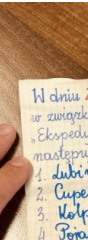 W dniu
w związk
„Ekspedy
następu
1. Lubi
2. Cupe
3. Kolp
4. Poja